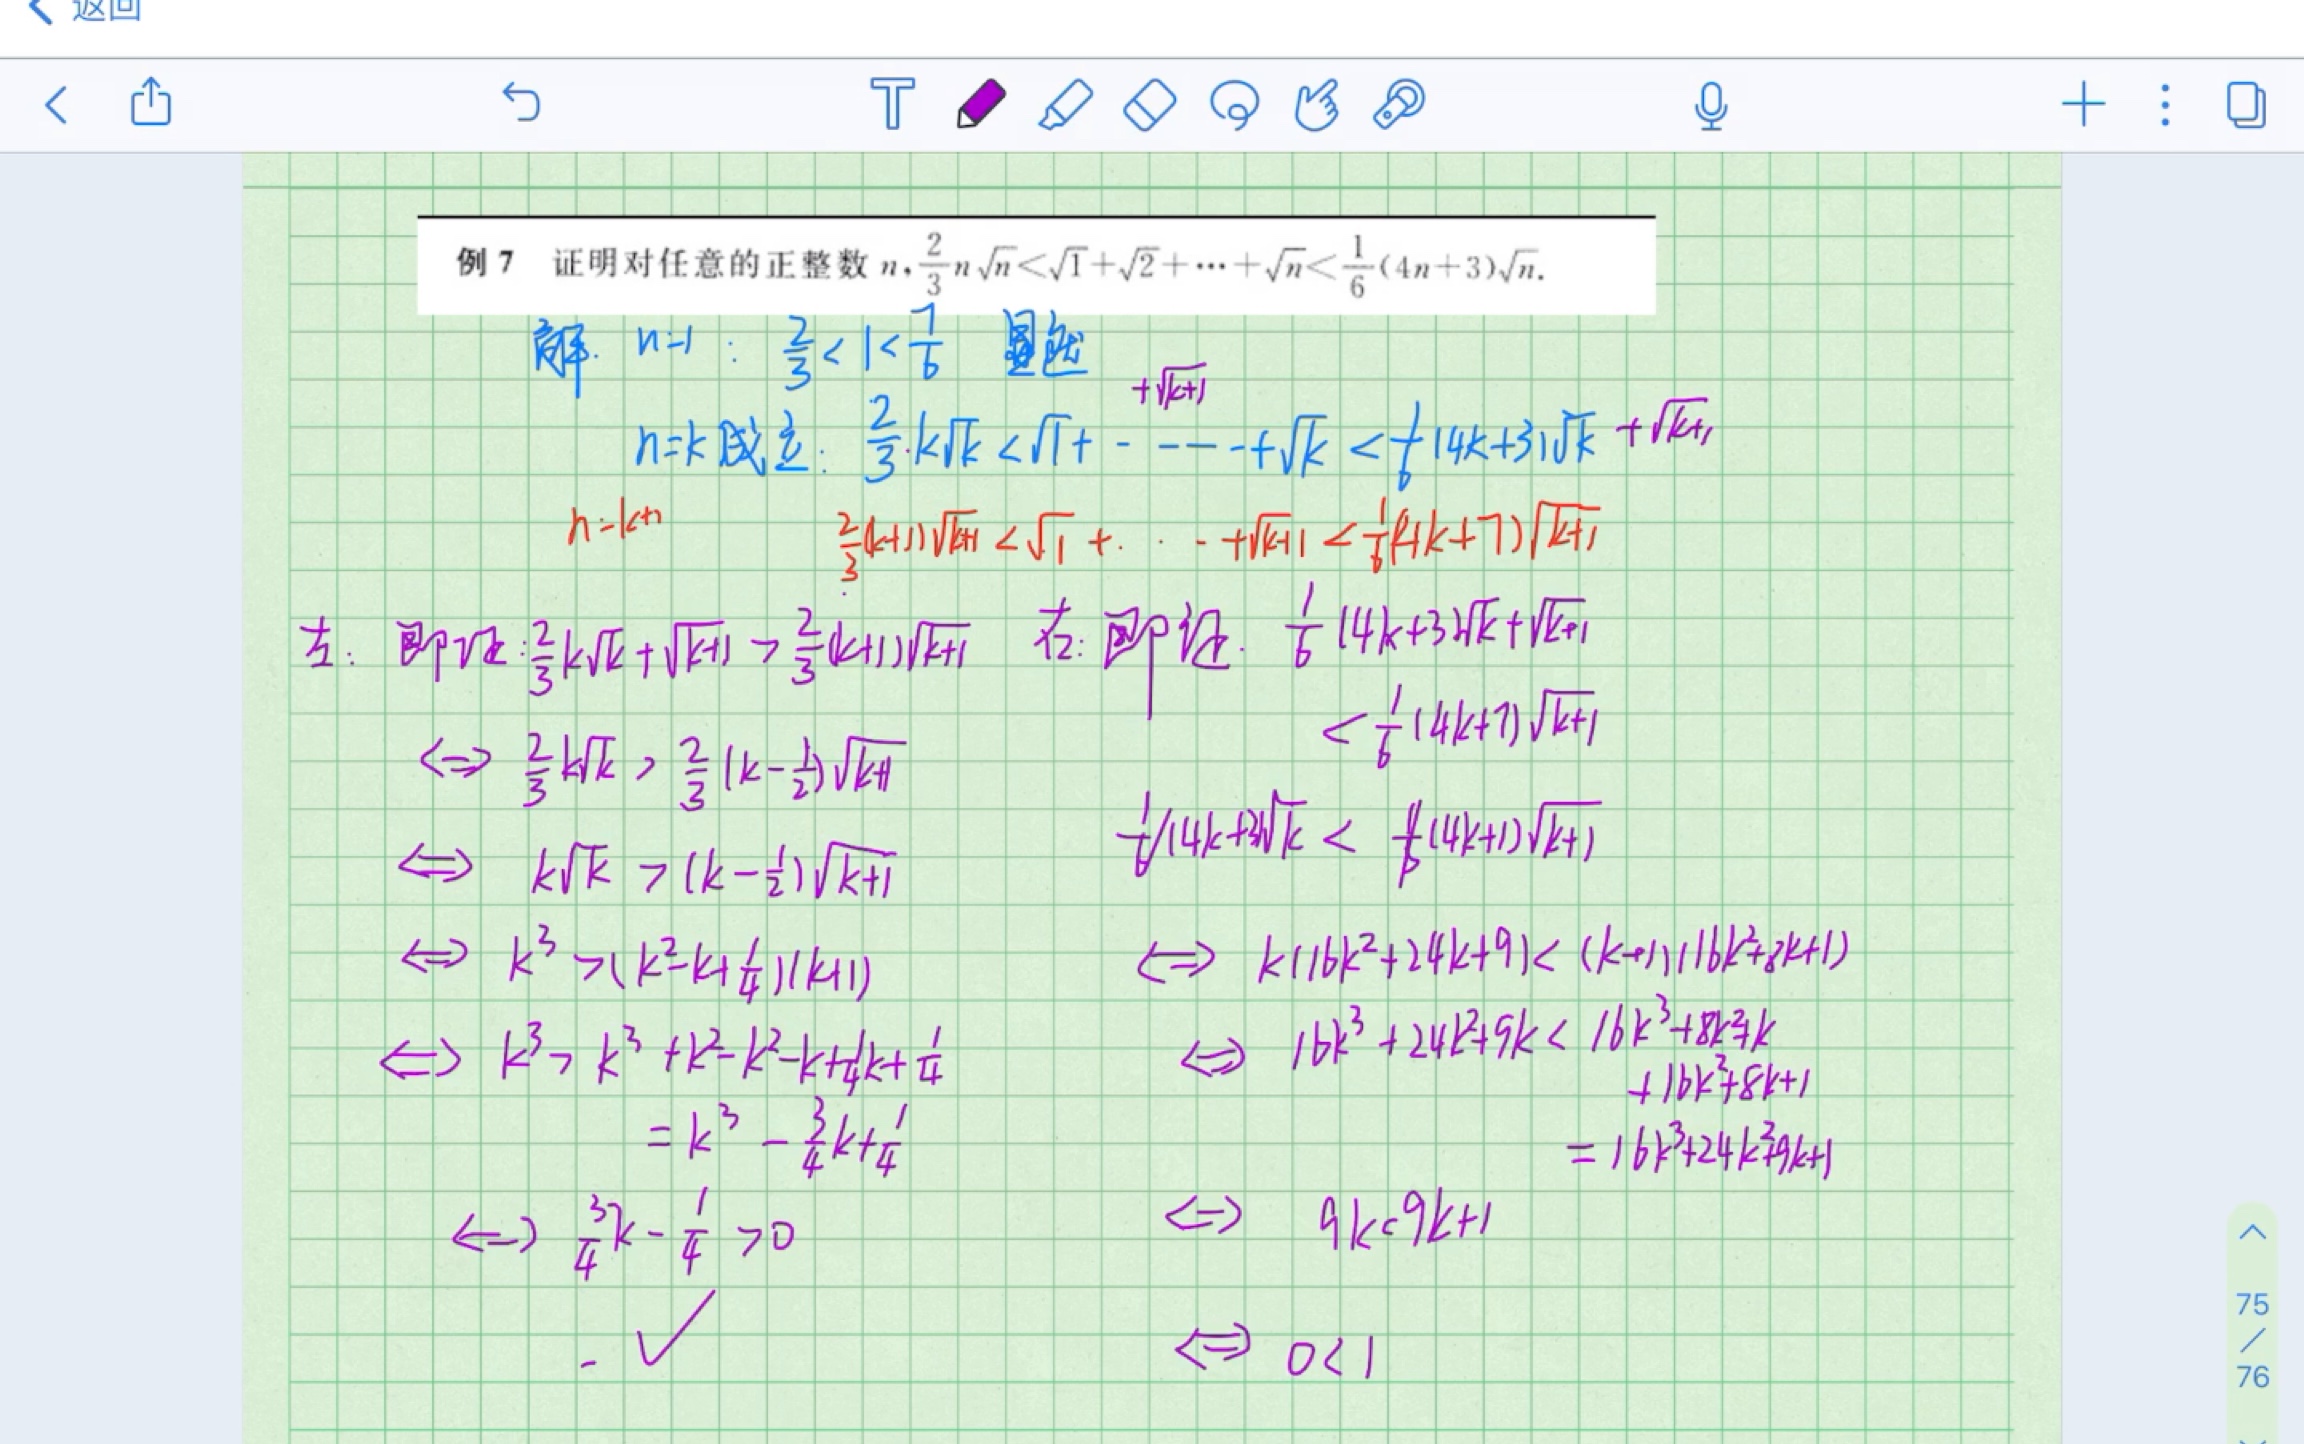 返回
例 7 证明对任意的正整数 n, \frac{2}{3}n√n<√1+√2+⋯+√n<\frac{1}{6}(4n+3)√n.
解. n=1 : \frac{2}{3} < 1 < \frac{7}{6} 显然
+√(k+1)
n=k 成立: \frac{2}{3}·k√k < √1 + - - - - +√k < \frac{1}{6}(4k+3)√k +√(k+1)
n=k+1 \frac{2}{3}(k+1)√(k+1) < √1 + · · - +√(k+1) < \frac{1}{6}(4k+7)√(k+1)
左: 即证: \frac{2}{3}k√k + √(k+1) > \frac{2}{3}(k+1)√(k+1)
⇔ \frac{2}{3}k√k > \frac{2}{3}(k-\frac{1}{2})√(k+1)
⇔ k√k > (k-\frac{1}{2})√(k+1)
⇔ k³ > (k²-k+\frac{1}{4})(k+1)
⇔ k³ > k³+k²-k²-k+\frac{1}{4}k+\frac{1}{4}
= k³ - \frac{3}{4}k+\frac{1}{4}
⇔ \frac{3}{4}k - \frac{1}{4} > 0
✓
右: 即证. \frac{1}{6}(4k+3)√k+√(k+1)
< \frac{1}{6}(4k+7)√(k+1)
\frac{1}{6}(4k+3)√k < \frac{1}{6}(4k+1)√(k+1)
⇔ k(16k²+24k+9) < (k+1)(16k²+8k+1)
⇔ 16k³+24k²+9k < 16k³+8k²+k
+16k²+8k+1
= 16k³+24k²+9k+1
⇔ 9k<9k+1
⇔ 0<1
75
/
76